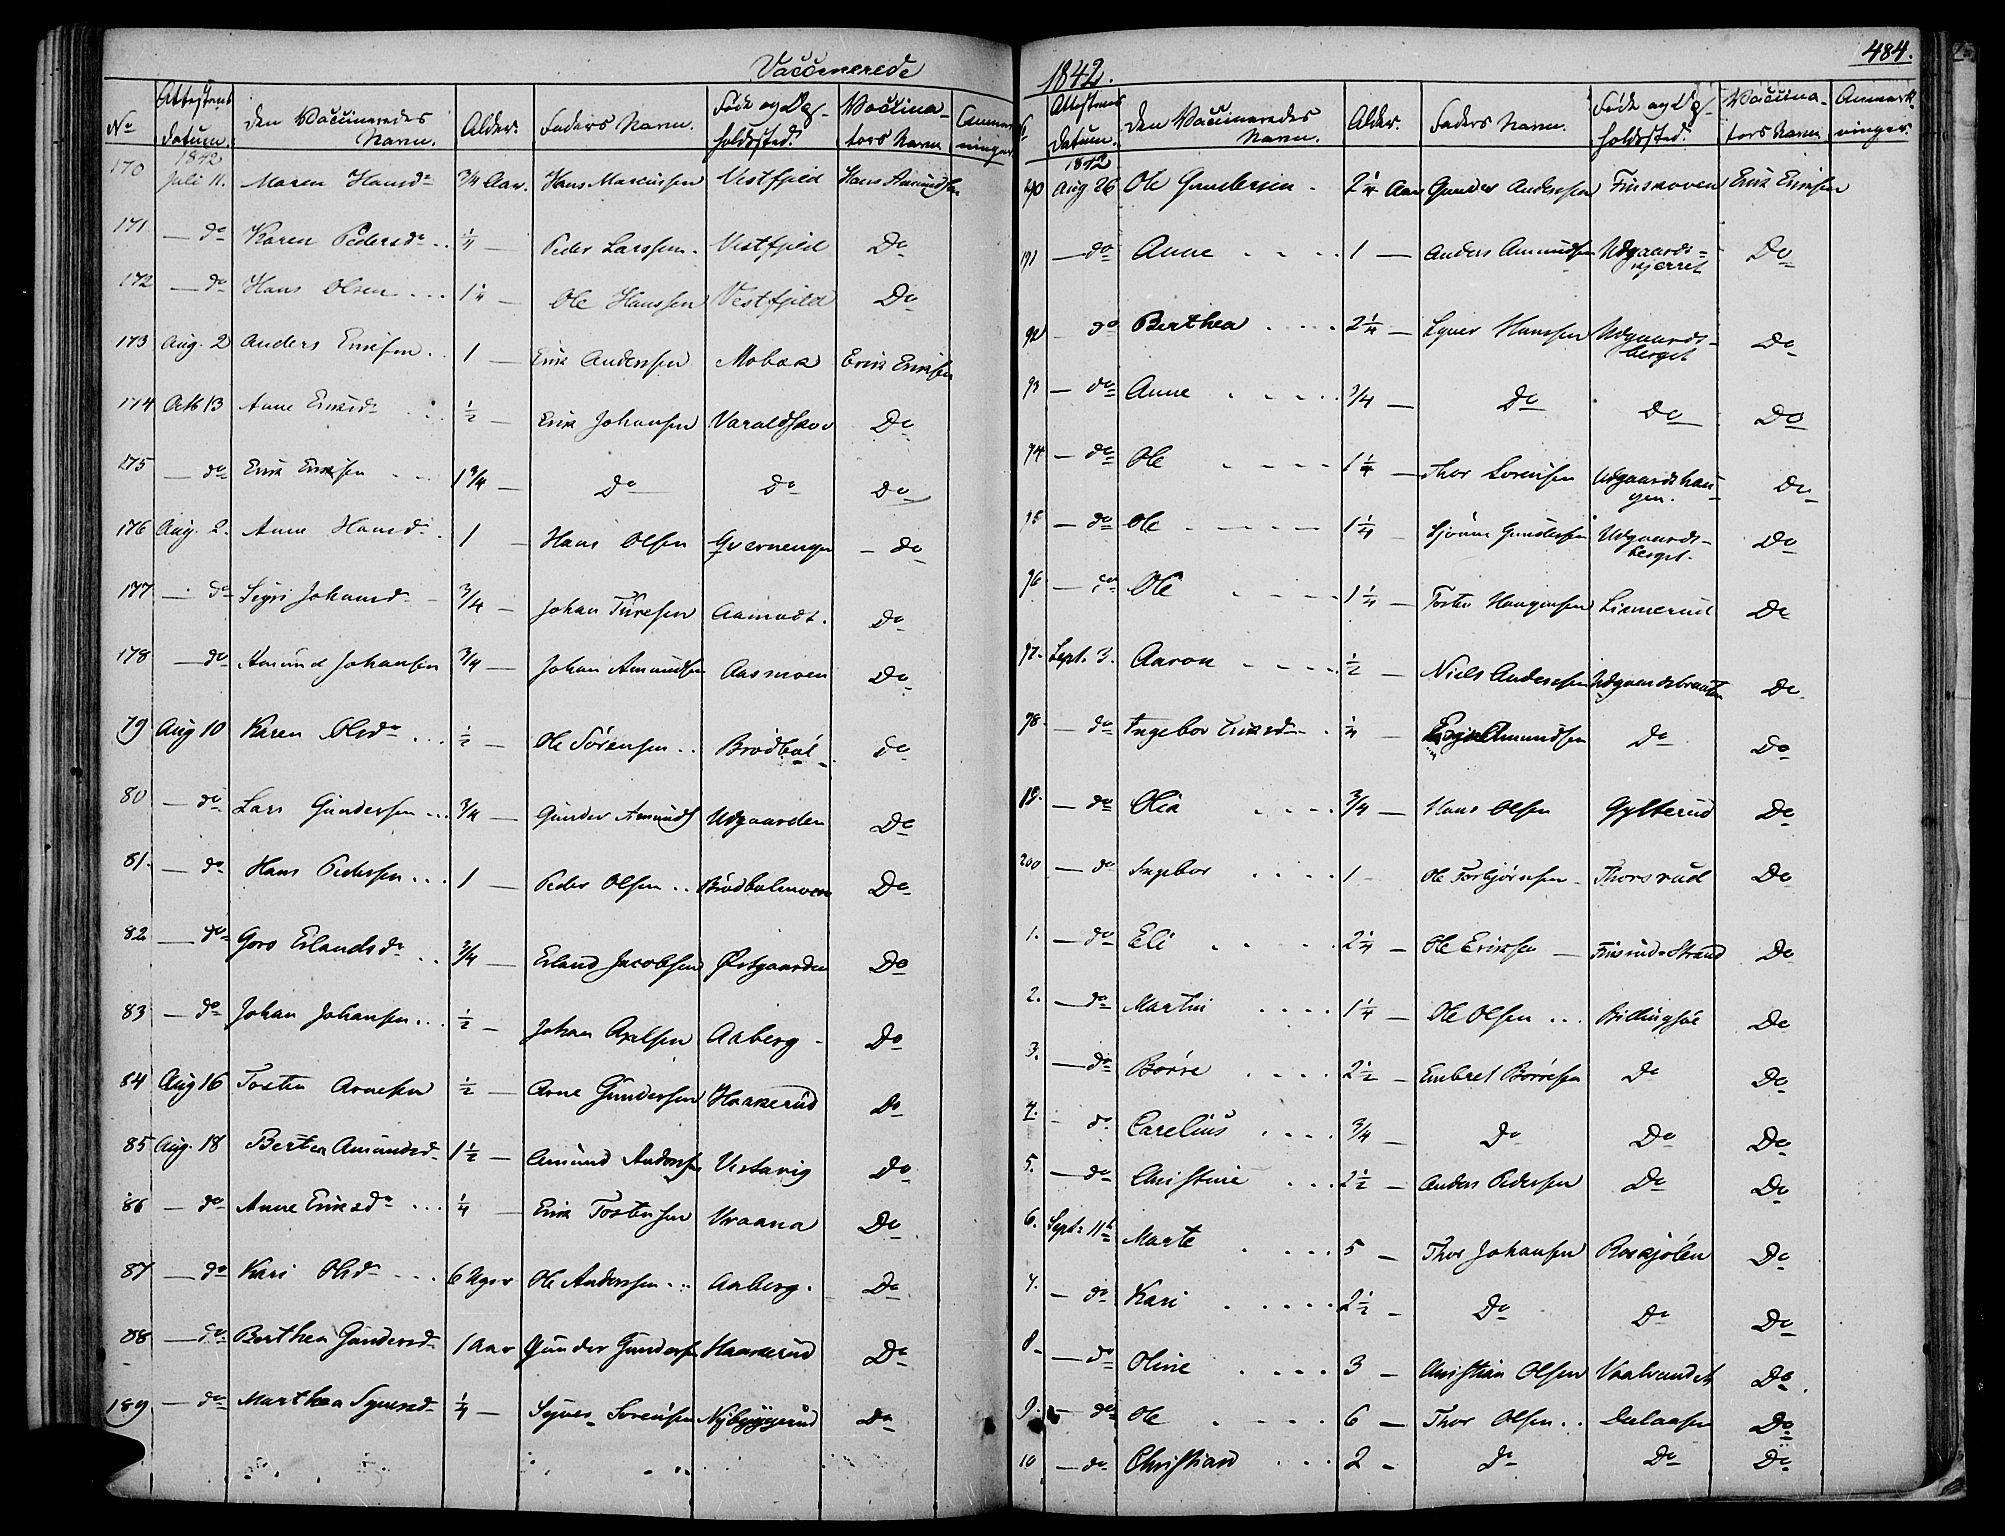 Vaccinerede
No Attestens Datum. Den Vaccineredes Navn. Alder. Faders Navn. Føde og Op- holdssted. Vaccina- tors Navn Anmærk- ninger
170 1842 Juli 11. Maren Hansd. 3/4 Aar. Hans Marcussen Vestfjeld Hans Amundsen
171 — do Karen Pedersd. .. 1/4 — Peder Larssen. Vestfjeld Do
172 — do Hans Olsen ... 1 1/4 — Ole Hanssen Vestfjeld Do
173 Aug. 2 Anders Eriksen .. 1 — Erik Anderssen Mobæk Erik Eriksen
174 Octb 13 Anne Eriksd. 1/2 — Erik Johansen Varaldskov Do
175 — do Erik Eriksen 1 3/4 — Do Do Do
176 Aug. 2. Anne Hansd. 1 — Hans Olsen Gvernengen — do
177 — do Sigri Johansd. 3/4 — Johan Turesen Aamodt. Do
178 — do Amund Johansen 3/4 — Johan Amundsen Aasmoen Do
79 Aug 10 Karen Olsd. ... 1/2 — Ole Sørensen .. Brødbøl Do
80 — do Lars Gundersen ... 3/4 — Gunder Amunds Udgaarden Do
81. — do Hans Pedersen ... 1 — Peder Olsen .. Brødbølmoen Do
82 — do Goro Erlandsd. .. 3/4 — Erland Jacobsen Østgaarden Do
83 — do Johan Johansen ... 1/2 — Johan Axelsen Aaberg Do
84 Aug 16 Tosten Arnesen 1/2 — Arne Gundersen Haakerud Do
85 Aug. 18 Berte Amundsd. 1 1/2 — Amund Andersen Vestavig Do
86 — do Anne Eriksd. ... 1/4 — Erik Tostensen Vraana Do
87 — do Kari Olsd. ... 6 Uger Ole Anderssen ... Aaberg. Do
88 — do Berthea Gundersd. 1 Aar Gunder Gundersen Haakerud Do
189 — do Marthea Syversd. 1/4 — Syver Sorensen Nybyggerud Do
1842. 484.
No Attestens Datum. Den Vaccineredes Navn. Alder. Faders Navn. Føde og Op- holdssted. Vaccina- tors Navn Anmærk- ninger.
190 1842 Aug 26 Ole Gundersen . 2 1/4 Aar Gunder Anderssen Finskoven Erik Eriksen
191 — do Anne .... 1 — Anders Amundsen Udgaards= kjerret Do
92 — do Berthea .... 2 1/4 — Syver Hanssen Udgaards- berget Do
93 — do Anne .... 3/4 — Do Do Do
94 — do Ole .... 1 1/4 — Thor Sorensen Udgaardshau- gen. Do
95 — do Ole — — — 1 1/4 — Sjønne Gundersen Udgaards- berget. Do
96 — do Ole .... 1 1/4 — Tosten Haagensen Linnerud Do
97. Sept. 3. Aaron .... 1/2 — Niels Andersen Udgaardsbraaten Do
98. — do Ingebor Eriksd. .. 1/4 — Amundsen Do Do
99. — do Olia .... 3/4 — Hans Olsen Gylterud Do
200 — do Ingebor .... 1 — Ole Torbjørnsen Thorsrud Do
1. — do Eli .... 2 1/4 — Ole Eriksen — Finsrud-Strand Do
2. — do Martin .... 1 1/4 — Ole Olsen ... Billingsøe Do
3. — do Børre .... 2 1/2 — Embret Børresen Do Do
4. — do Carelius .... 3/4 — Do Do Do
5. — do Christine ... 2 1/2 — Anders Pedersen Do Do
6. Sept. 11t Marte .... 5 — Thor Johansen Roskjølen Do
7. — do Kari ..... 2 1/2 — Do Do Do
8. — do Oline .... 3 — Christian Olsen Vaalvandet Do
9. — do Ole .... 6 — Thor Olsen .. Delaasen Do
10 — do Christian ... 2 — Do Do Do